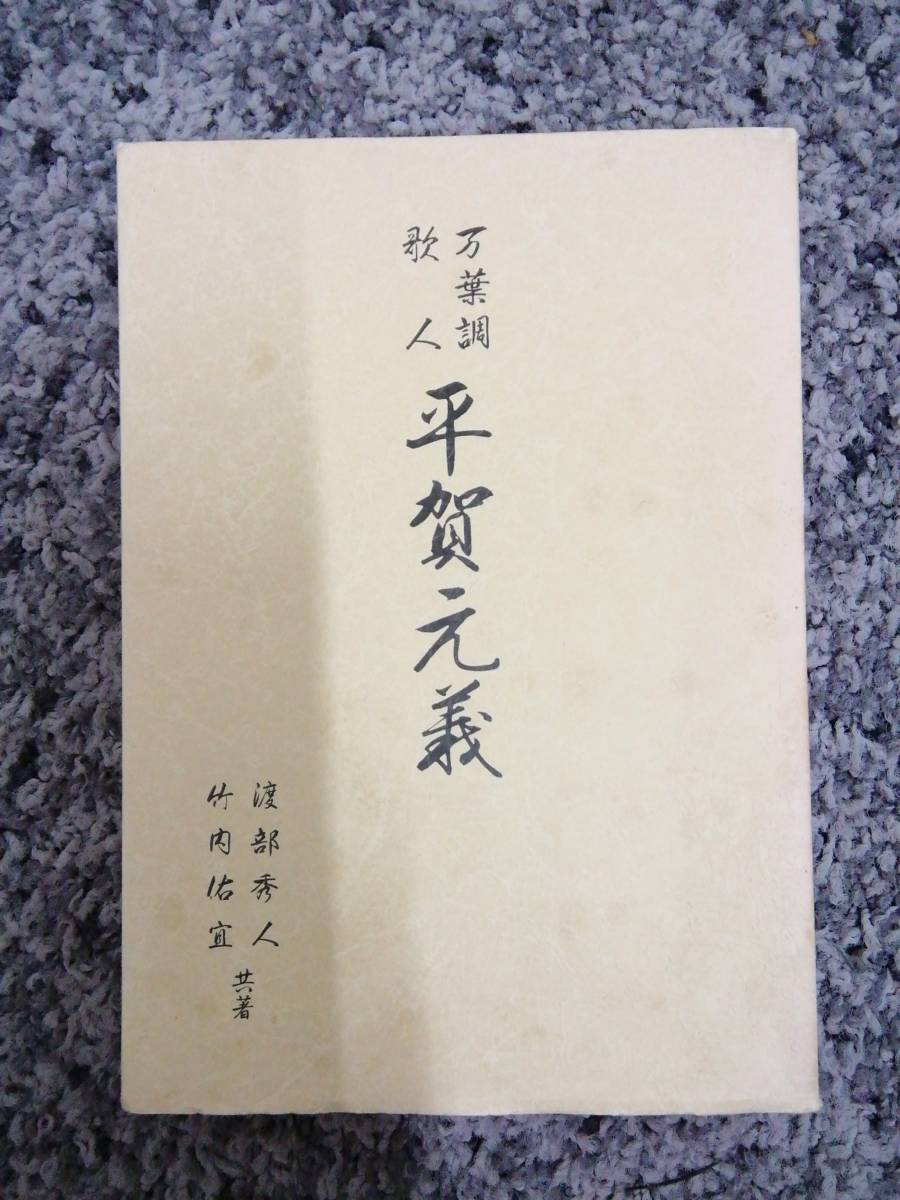 万葉調
歌人
平賀元義
渡部秀人
竹内佑宜
共著